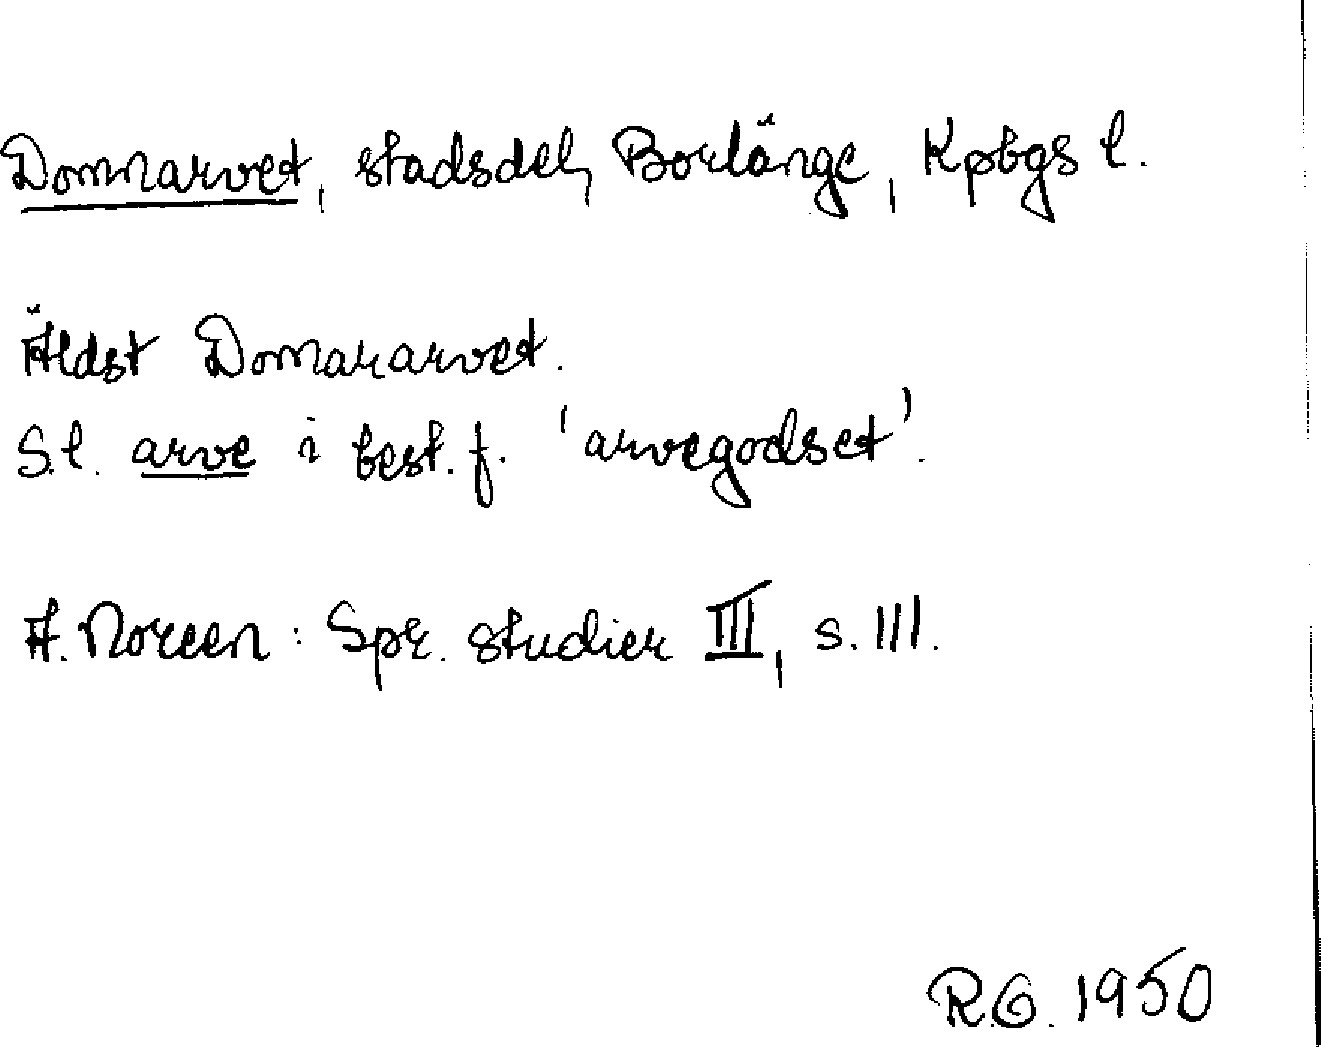 Domnarvet, stadsdel, Borlänge, Kpbgs l.
Äldst Domararvet.
S.l. arve i best. f. 'arvegodset'.
A. Noreen: Spr. studier III, s. 111.
R.G. 1950